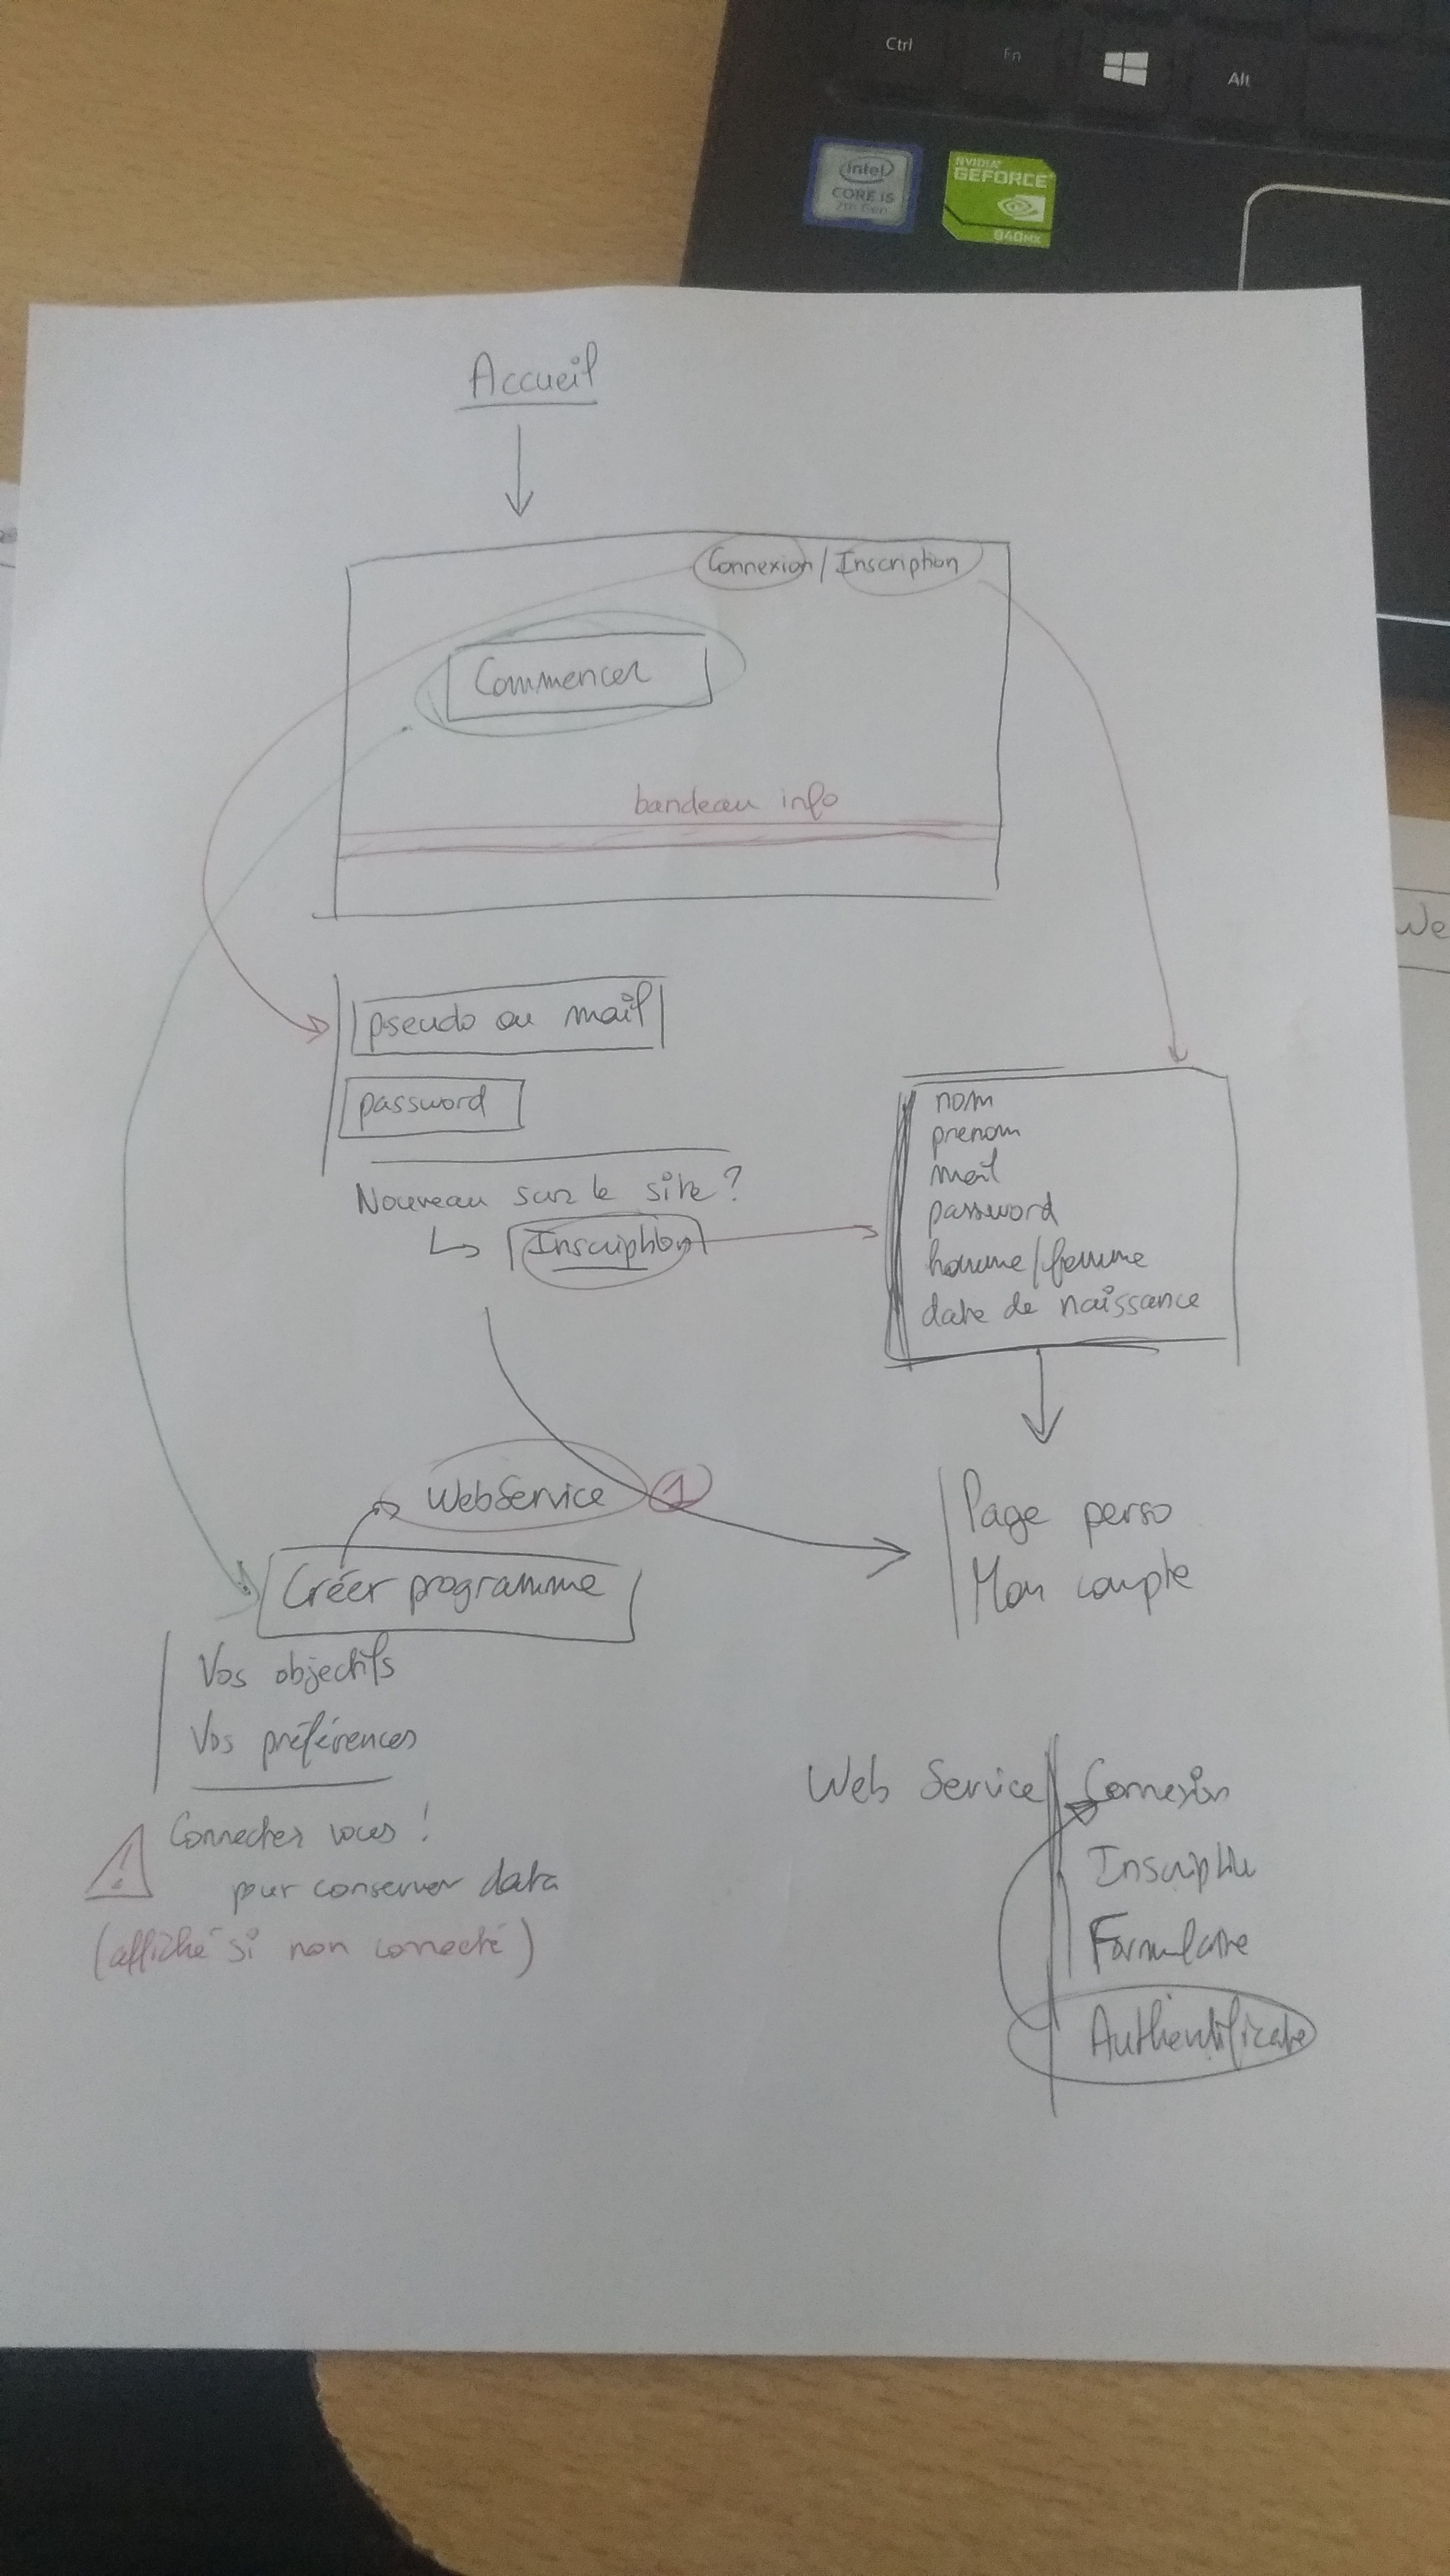 Ctrl
Fn
Alt
intel
CORE i5
7th Gen
NVIDIA
GEFORCE
940MX
Accueil
Connexion / Inscription
Commencer
bandeau info
We
pseudo ou mail
password
Nouveau sur le site ?
Inscription
nom
prenom
mail
password
homme/femme
date de naissance
WebService 1
Créer programme
Page perso
Mon compte
Vos objectifs
Vos préférences
Connectez vous !
pour conserver data
(affiché si non connecté)
Web Service
Connexion
Inscription
Formulaire
Authentificate